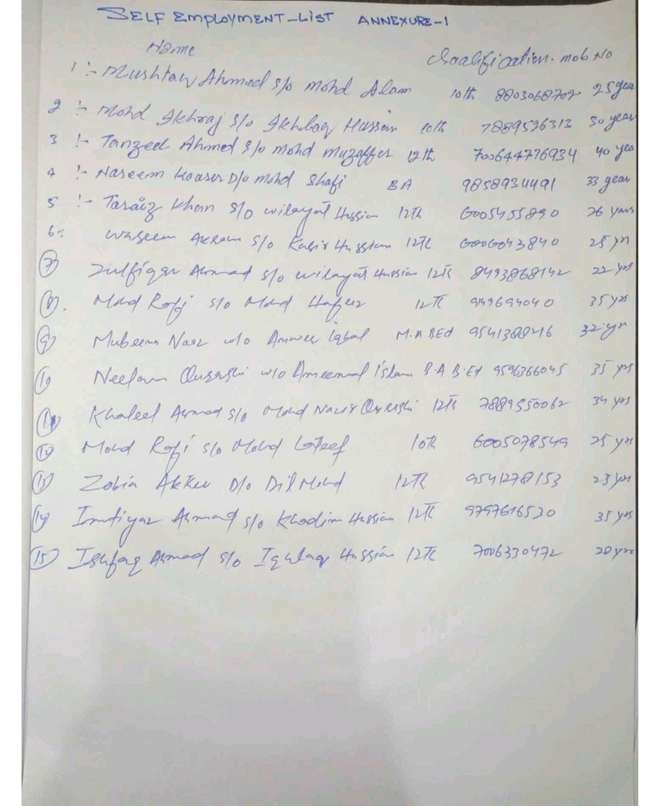 SELF EMPLOYMENT-LIST ANNEXURE-1
Name Qualification. mob. No
1 :- Mushtaq Ahmed S/o Mohd Alam 10th 8803068702 25 year
2 :- Mohd S/o Akhlaq Hussain 10th 7889536313 30 year
3 :- Tanzeed Ahmed S/o Mohd Muzaffer 12th 700644776934 40 yea
4 :- Naseem Kouser D/o Mohd Shafi BA 9858934491 33 year
5 :- Khan S/o Wilayat Hussian 12th 6005455890 26 years
6:- Waseem Akram S/o Hussian 12th 6006043840 25 yrs
7 Zulfiqar Ahmad S/o Wilayat Hussian 12th 8493868142 22 yrs
8. Mohd Rafi S/o Mohd 12th 949694040 35 yrs
9 Mubeena Naaz W/o Iqbal M.A BEd 9541388216 32 yr
10 Neelam Qurashi W/o Ameenul Islam B.A B.Ed 9596366045 35 yrs
11 Khaleel Ahmad S/o Mohd Nazir Qurashi 12th 7889550062 34 yrs
12 Mohd Rafi S/o Mohd Lateef 10th 6005078549 25 yrs
13 Zobia Akter D/o Dil Mohd 12th 9541278153 23 yrs
14 Imtiyaz Ahmad S/o Khadim Hussian 12th 9797616530 35 yrs
15 Ishfaq Ahmad S/o Iqhlaq Hussian 12th 7006330472 28 yrs